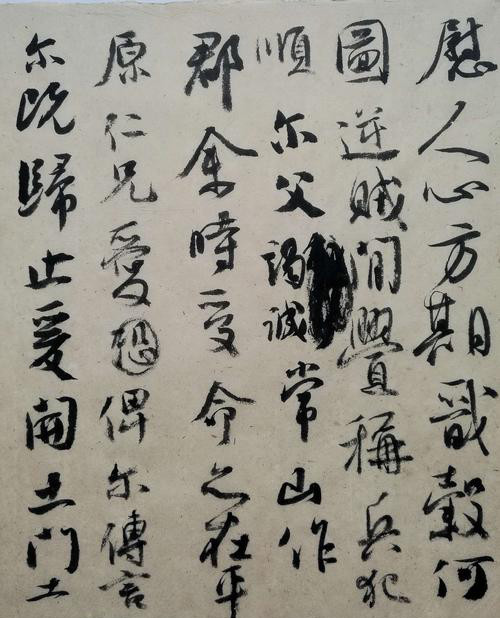 慰人心方期戩穀何
圖逆賊間舋稱兵犯
順尔父竭誠常山作
郡余時受命亦在平
原仁兄愛恐俾尔傳言
尔既歸止爰開土門土